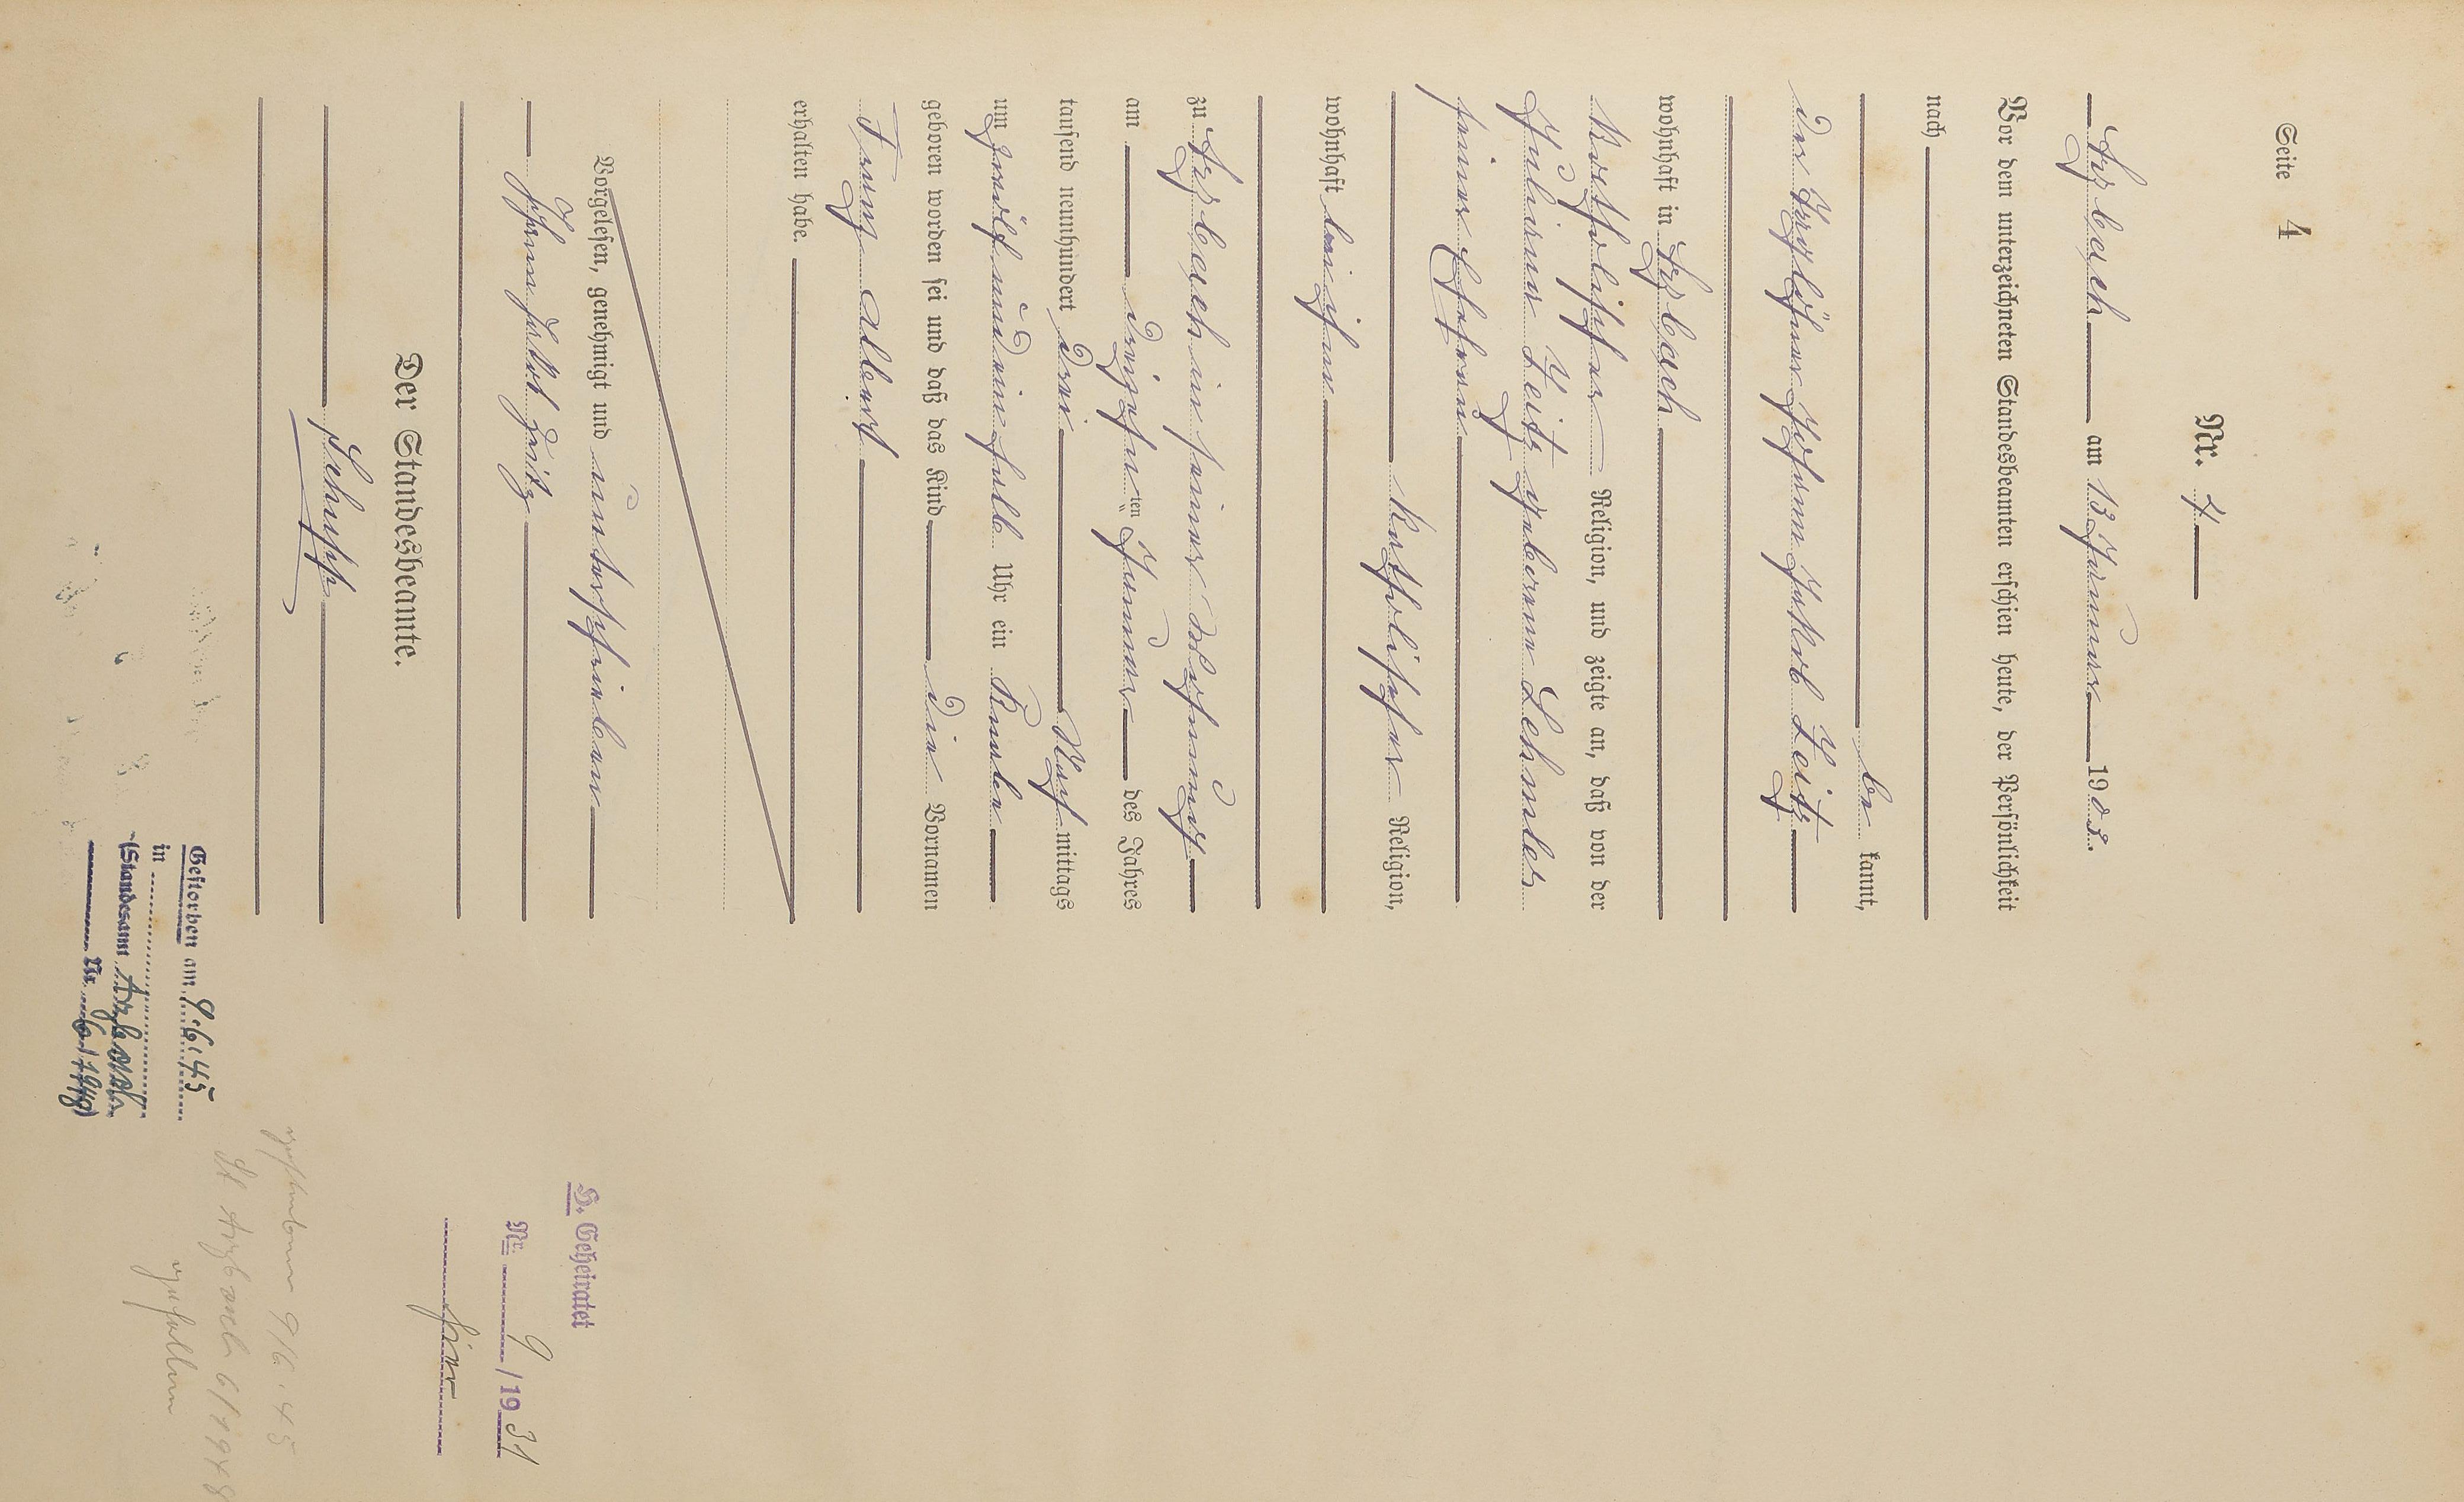 Seite 4
Nr. 4
Arzbach am 13 Januar 1903.
Vor dem unterzeichneten Standesbeamten erschien heute, der Persönlichkeit
nach
be kannt,
der Johann Jakob Zeitz
wohnhaft in Arzbach
katholischer Religion, und zeigte an, daß von der
Juliana Zeitz geborene Lehmler
seiner Ehefrau
katholischer Religion,
wohnhaft bei ihm
zu Arzbach in seiner Wohnung
am dreizehnten Januar des Jahres
tausend neunhundert drei Nachmittags
um zwölf und ein halb Uhr ein Knabe
geboren worden sei und daß das Kind die Vornamen
Franz Albert
erhalten habe.
Vorgelesen, genehmigt und unterschrieben
Johann Jakob Zeitz
Der Standesbeamte.
Schupp
H. Geheiratet
Nr. 9/1931
hier
Gestorben am 9.6.45
in
(Standesamt Arzbach
Nr. 6/1948)
gestorben 9/6.45
St Arzbach 6/1948
gefallen